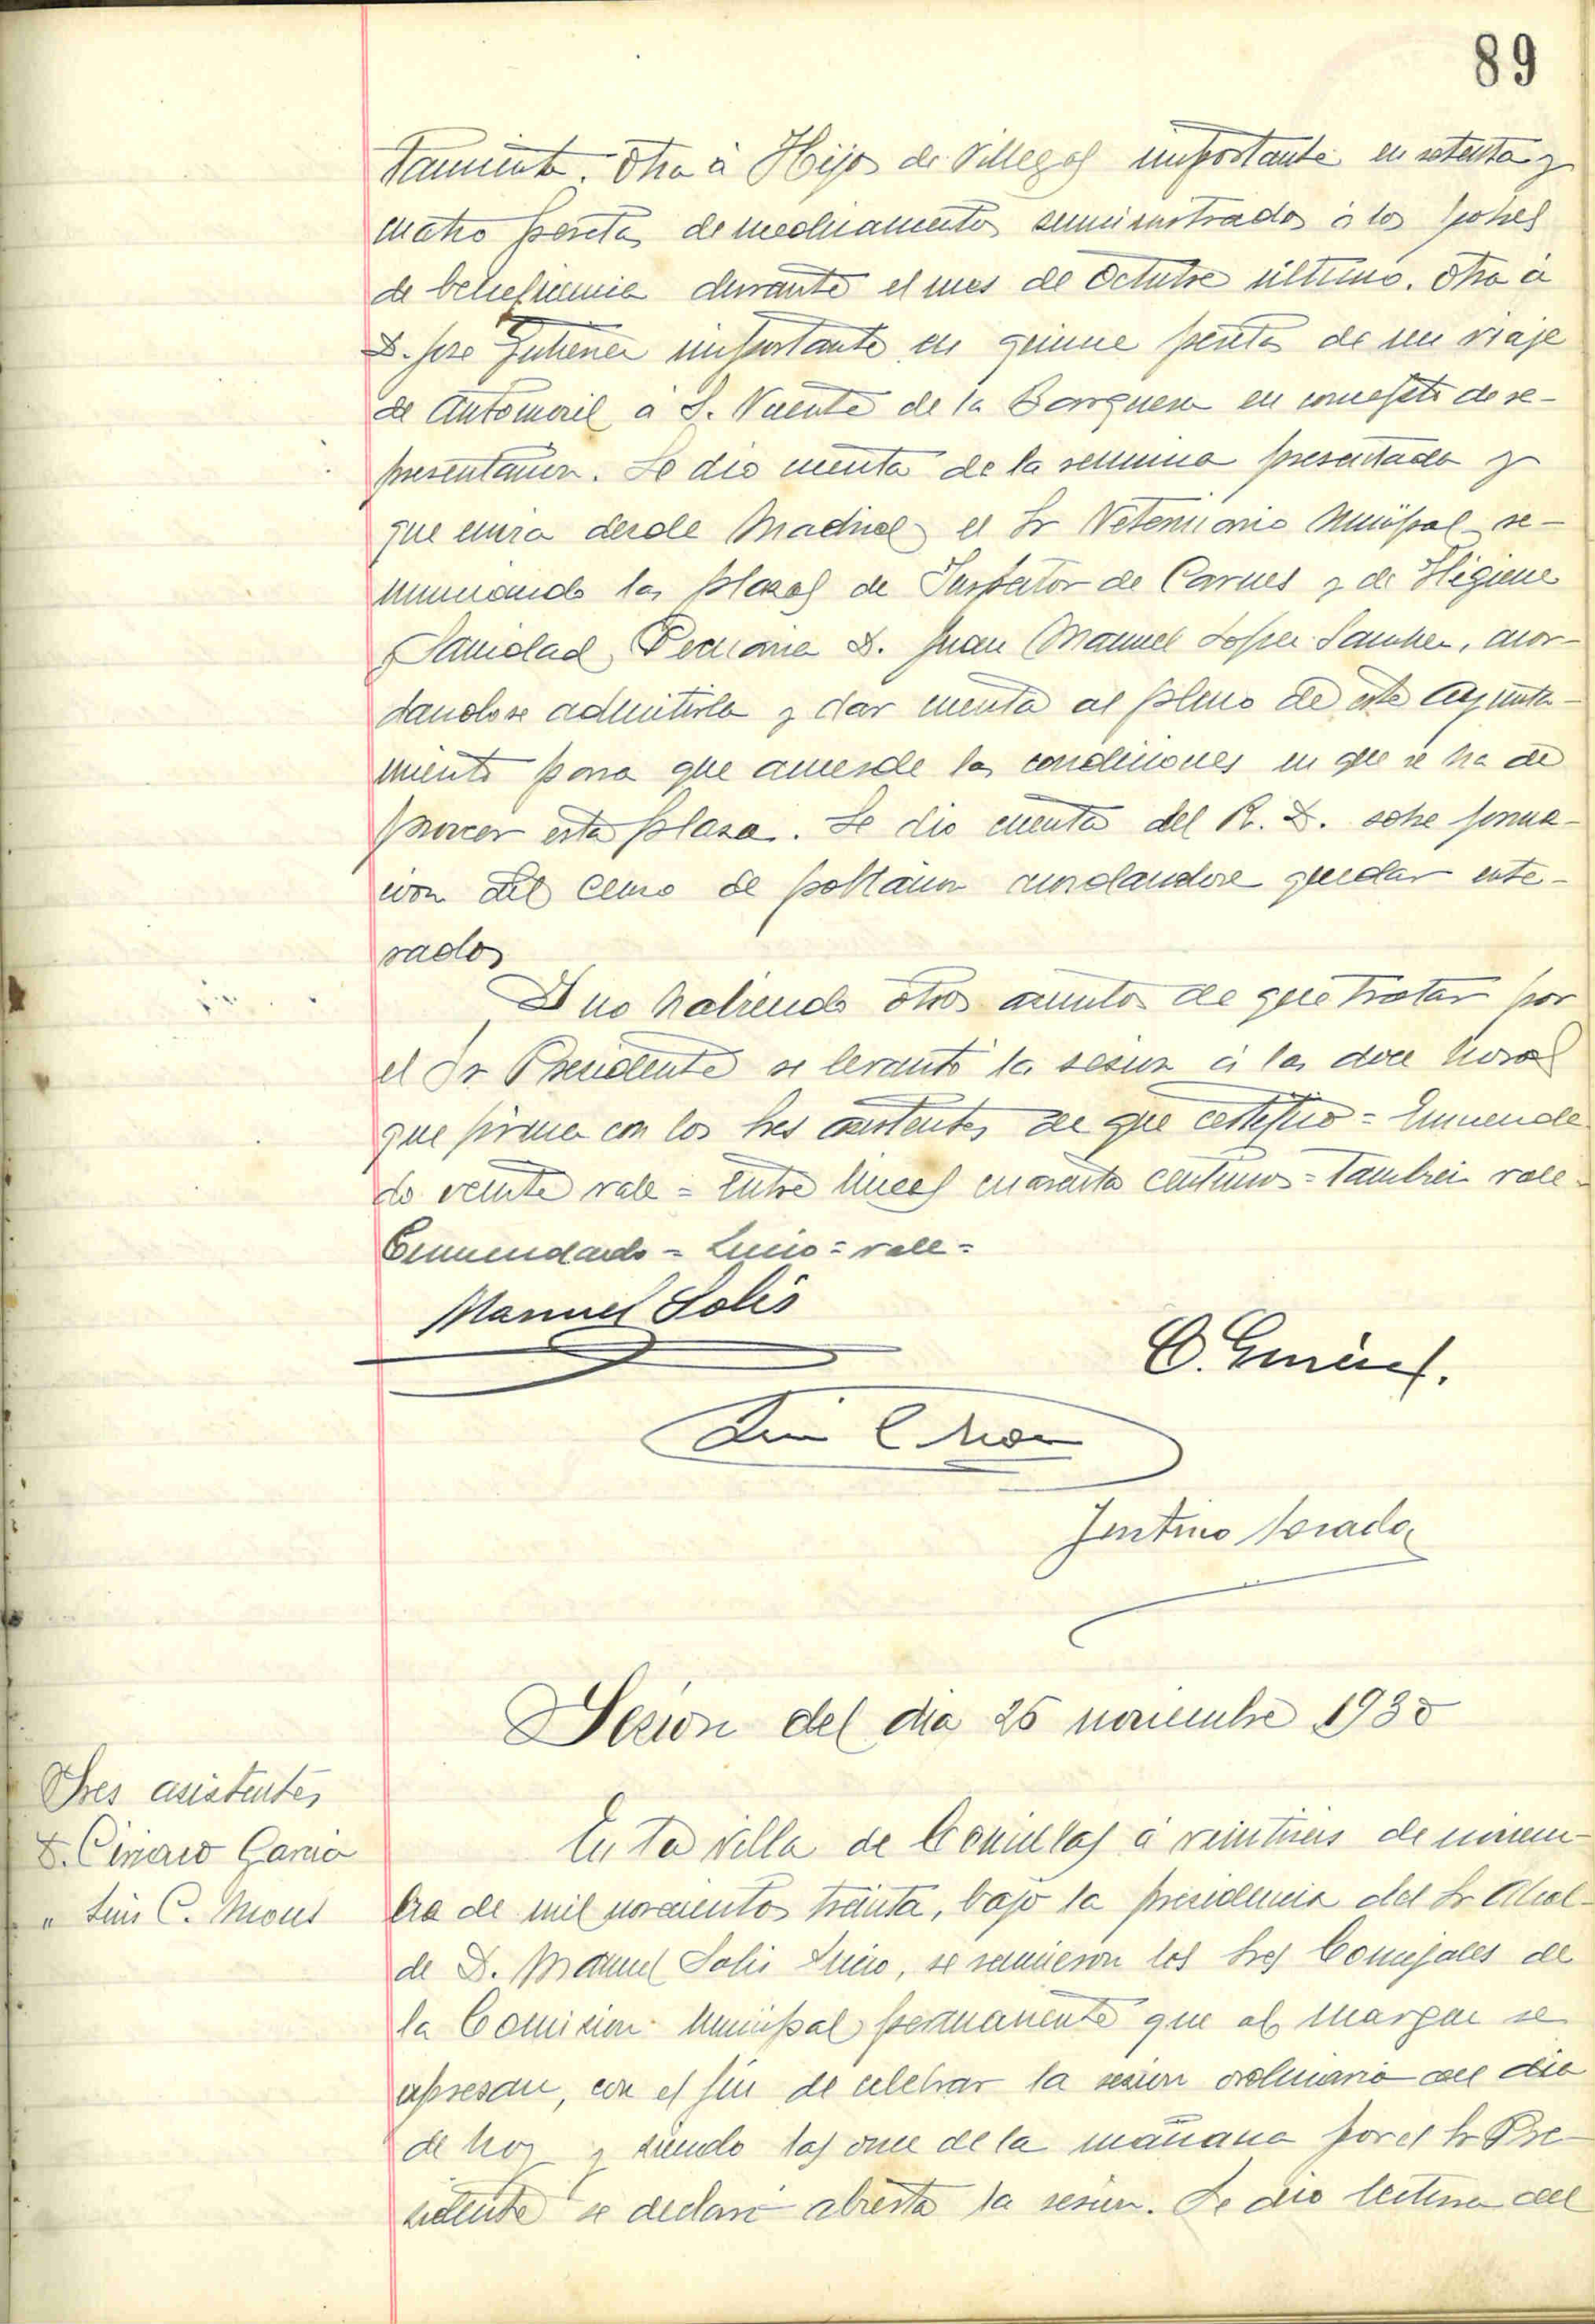 89
tamiento. Otra á Hijos de Villegas importante en setenta y
cuatro pesetas de medicamentos suministrados á los pobres
de beneficencia durante el mes de Octubre último. Otra á
D. Jose Gutierrez importante en quince pesetas de un viaje
de Automovil á S. Vicente de la Barquera en concepto de re-
presentacion. Se dio cuenta de la renuncia presentada y
que envia desde Madrid el Sr Veterinario Municipal re-
nunciando las plazas de Inspector de Carnes y de Higiene
y Sanidad Pecuaria D. Juan Manuel Lopez Sanchez, acor-
dandose admitirla y dar cuenta al pleno de este Ayunta-
miento para que acuerde las condiciones en que se ha de
proveer esta plaza. Se dio cuenta del R. D. sobre forma-
cion del Censo de poblacion acordandose quedar ente-
rados
Y no habiendo otros asuntos de que tratar por
el Sr Presidente se levantó la sesion á las doce horas
que firma con los Sres asistentes de que certifico = Enmenda
do veinte vale = Entre lineas cuarenta centimos = Tambien vale =
Enmendado = Lucio = vale =
Manuel Solís
Luis C Mons
Justino Posada
Sesion del dia 26 noviembre 1930
Sres asistentes
D. Ciriaco Garcia
" Luis C. Mons
En la Villa de Comillas á veintiseis de noviem-
bre de mil novecientos treinta, bajo la presidencia del Sr Alcal-
de D. Manuel Solis Lucio, se reunieron los Sres Concejales de
la Comision Municipal permanente que al margen se
expresan, con el fin de celebrar la sesion ordinaria del dia
de hoy y siendo las once de la mañana por el Sr Pre-
sidente se declaró abierta la sesion. Se dio lectura del